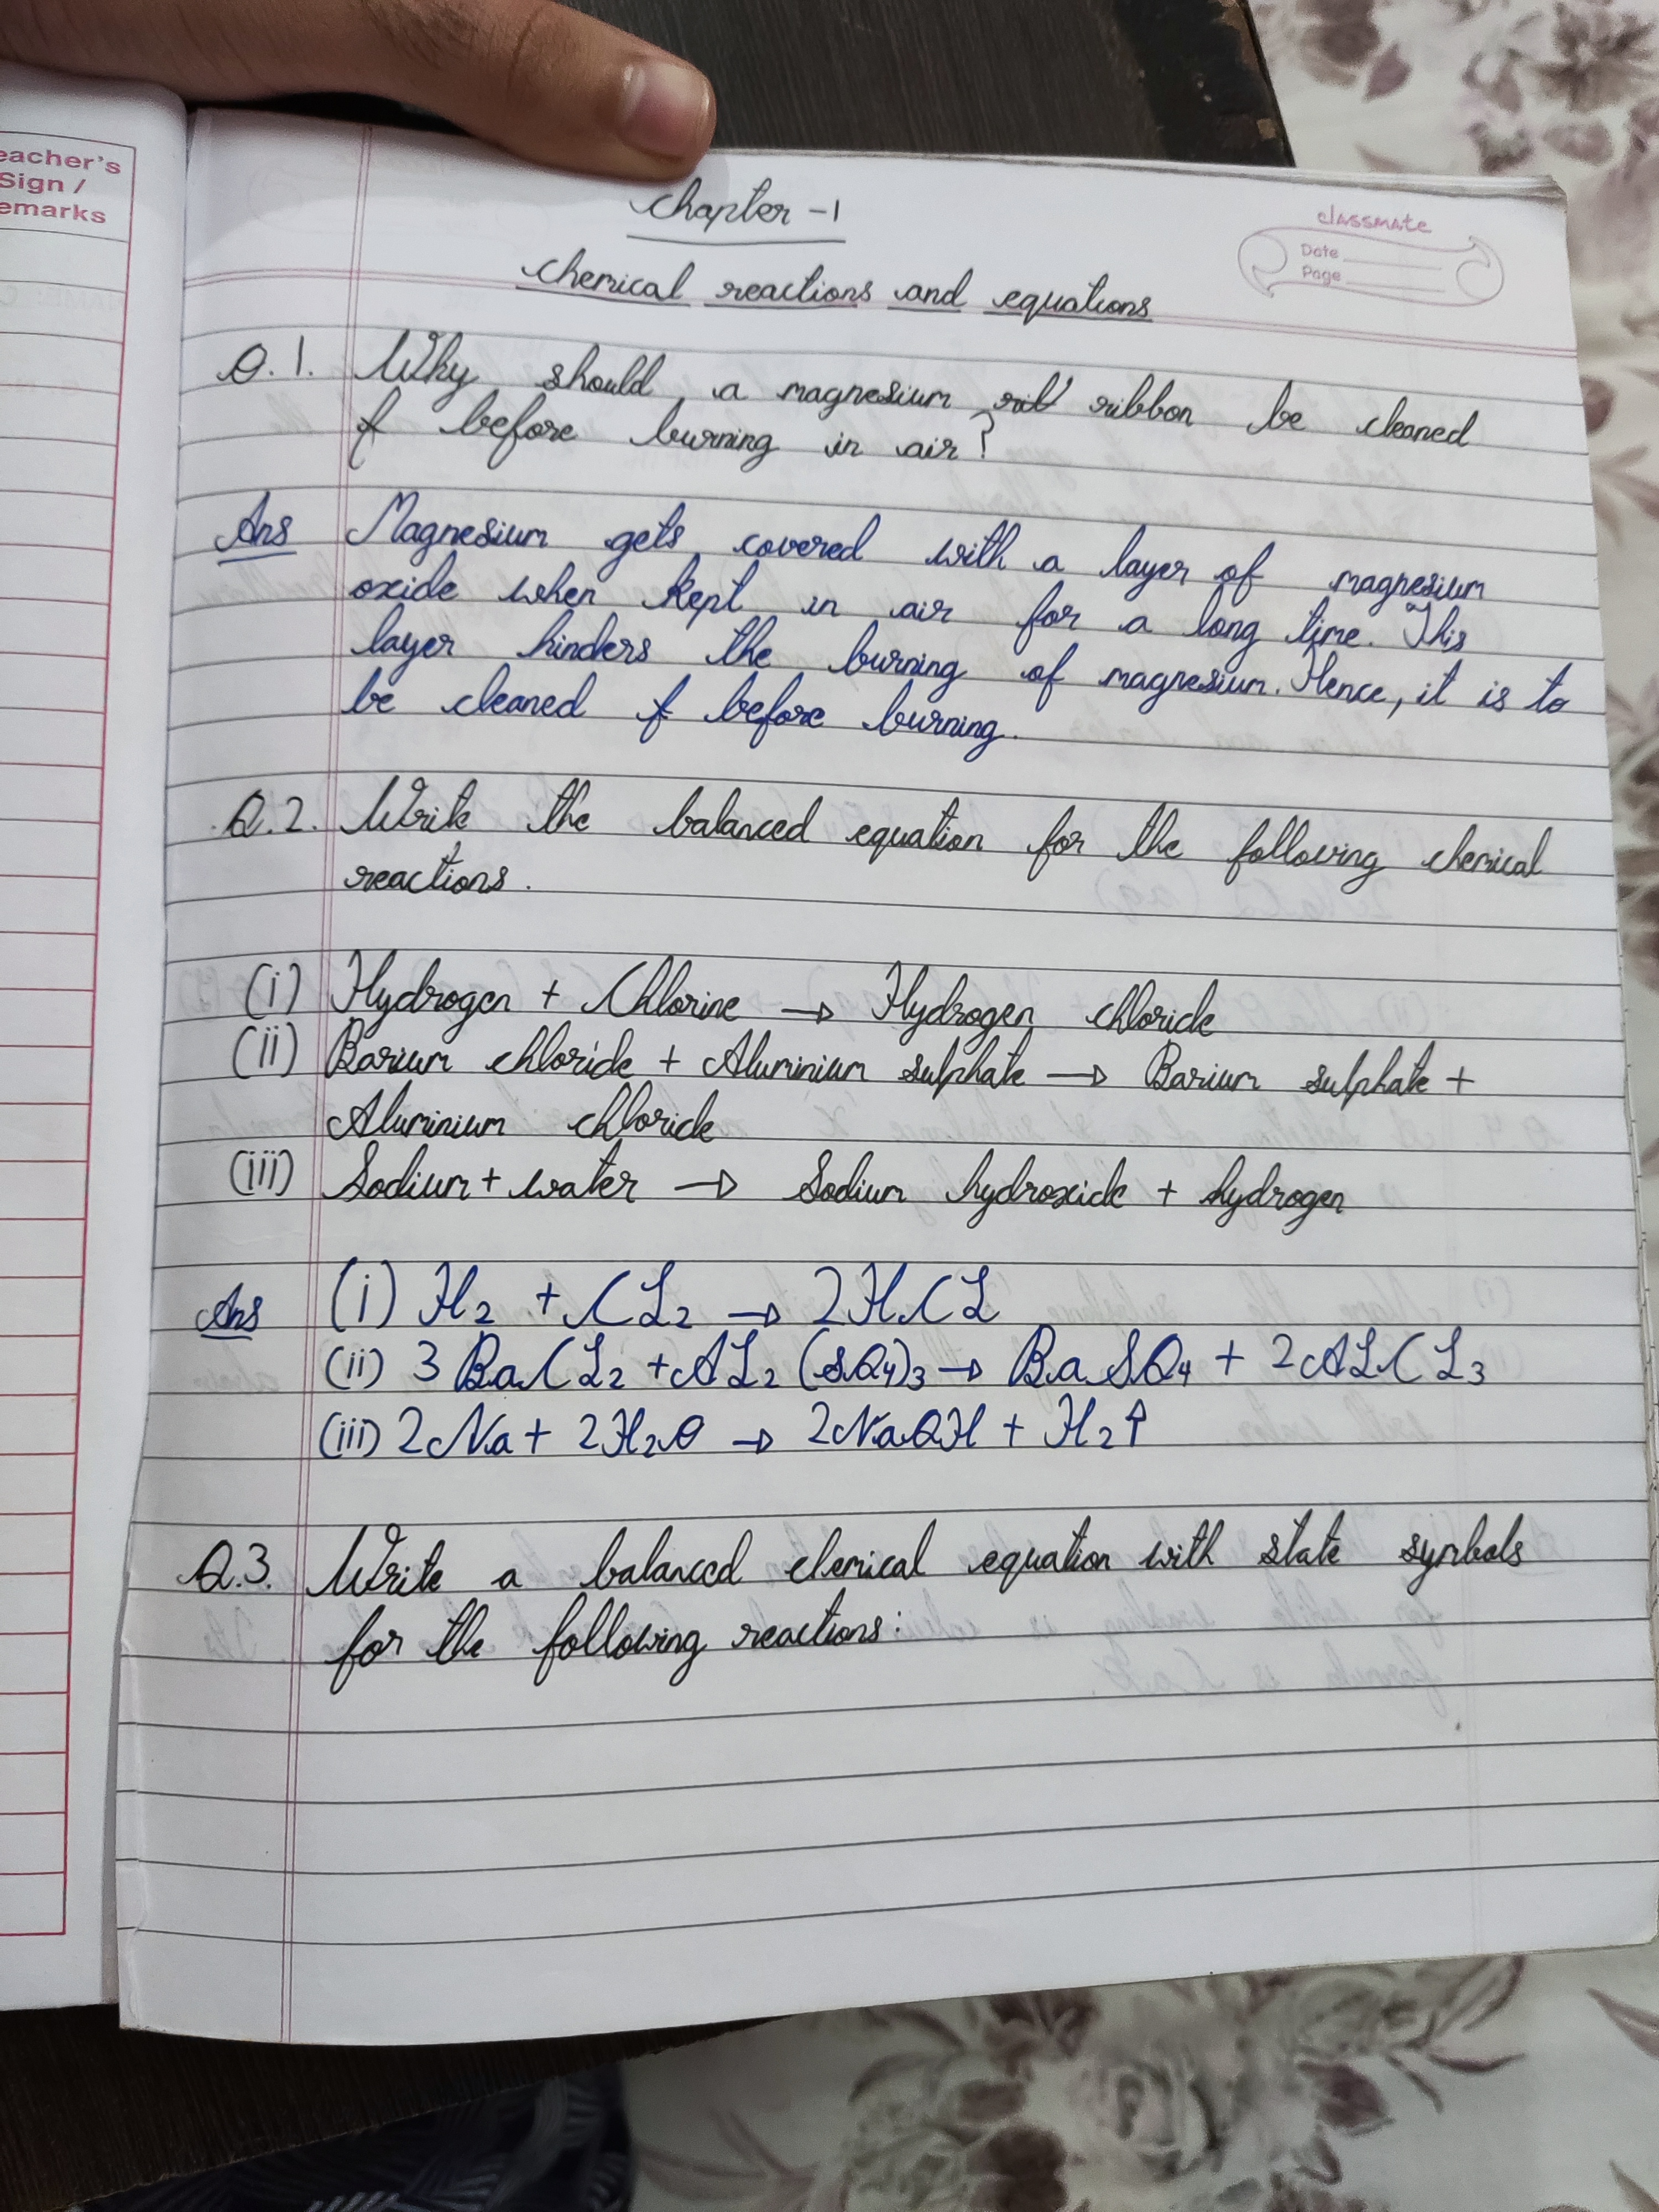 eacher's
Sign /
emarks
Chapter - 1
classmate
Date
Page
Chemical reactions and equations
Q.1. Why should a magnesium ribbon be cleaned
before burning in air?
Ans Magnesium gets covered with a layer of magnesium
oxide when kept in air for a long time. This
layer hinders the burning of magnesium. Hence, it is to
be cleaned before burning.
Q.2. Write the balanced equation for the following chemical
reactions.
(i) Hydrogen + Chlorine → Hydrogen chloride
(ii) Barium chloride + Aluminium sulphate → Barium sulphate +
Aluminium chloride
(iii) Sodium + water → Sodium hydroxide + hydrogen
Ans (i) H₂ + CL₂ → 2HCL
(ii) 3BaCL₂ + AL₂(SO₄)₃ → BaSO₄ + 2ALCL₃
(iii) 2Na + 2H₂O → 2NaOH + H₂↑
Q.3. Write a balanced chemical equation with state symbols
for the following reactions: